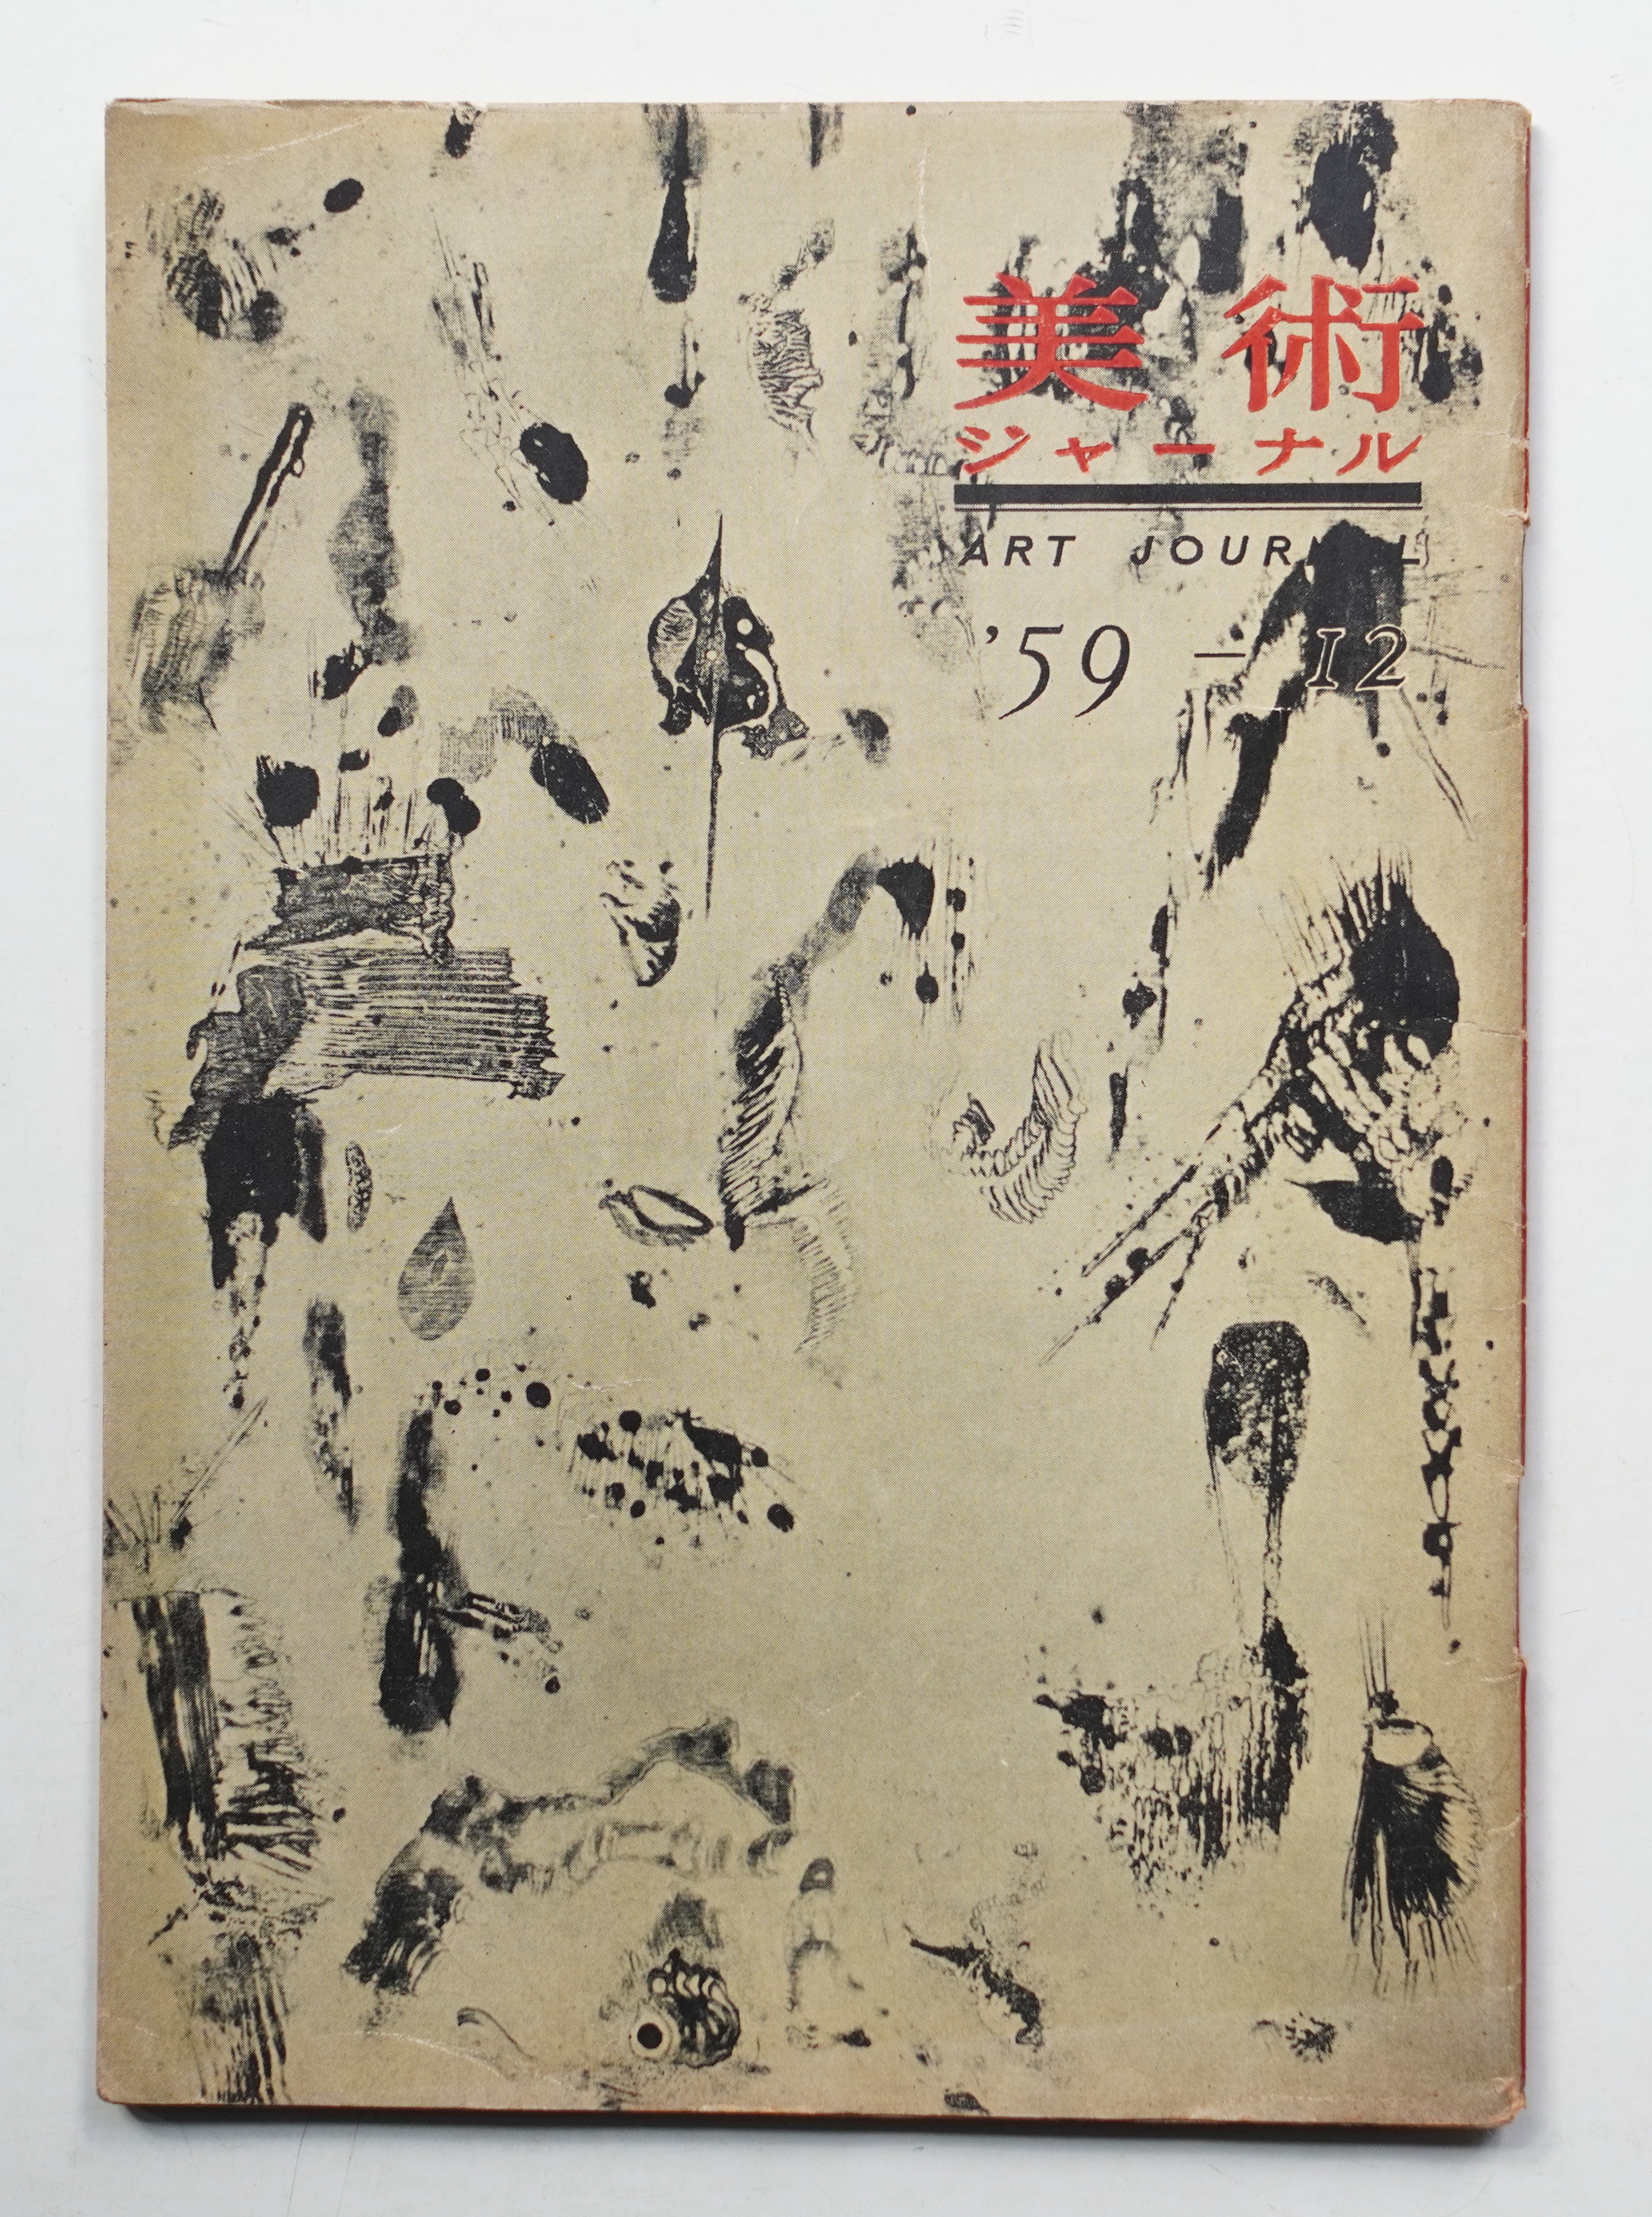 美術
ジャーナル
ART JOURNAL
'59 — 12